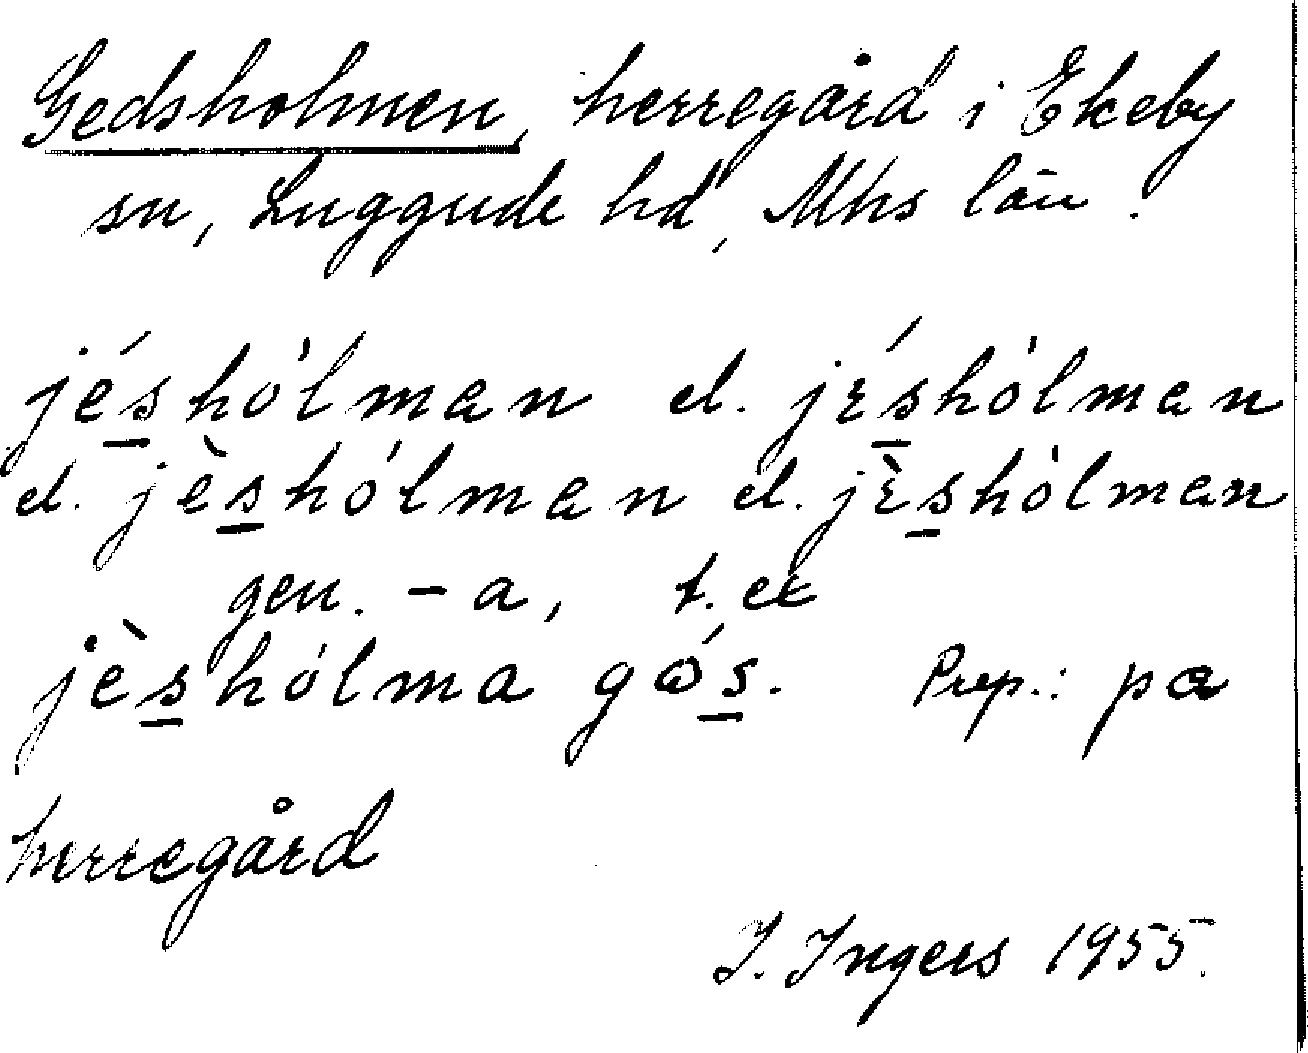 Gedsholmen, herregård i Ekeby
sn, Luggude hd, Mhs län.
jés̲hólman el. jɛ́s̲hólman
el. jès̲hólman el. jɛ̀s̲hólman
gen. -a, t. ex
jès̲hólma gɷ́s̲. Prep.: pa
herregård
I. Ingers 1955.